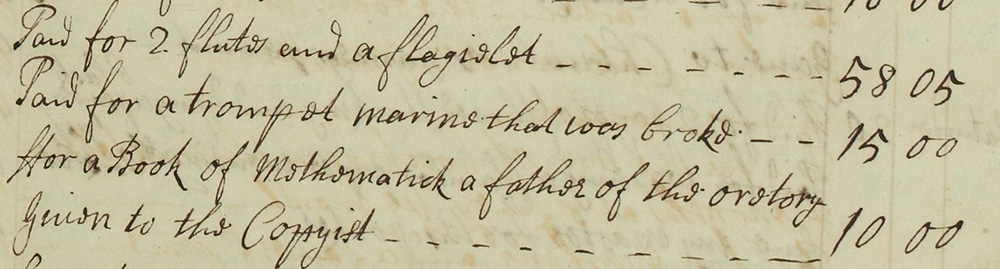 Paid for 2 flutes and a flagielet - - - - - - - 58 05
Paid for a trompet marine that was broke - - - 15 00
ffor a Book of Methematick a father of the oretory
Given to the Copyist - - - - - - - - 10 00